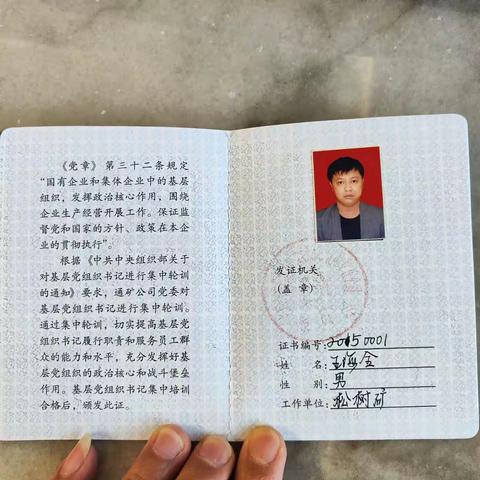 《党章》第三十二条规定
“国有企业和集体企业中的基层
组织，发挥政治核心作用，围绕
企业生产经营开展工作。保证监
督党和国家的方针、政策在本企
业的贯彻执行”。
根据《中共中央组织部关于
对基层党组织书记进行集中轮训
的通知》要求，通矿公司党委对
基层党组织书记进行集中轮训。
通过集中轮训，切实提高基层党
组织书记履行职责和服务员工群
众的能力和水平，充分发挥好基
层党组织的政治核心和战斗堡垒
作用。基层党组织书记集中培训
合格后，颁发此证。
发证机关
(盖 章)
证书编号:20150001
姓 名:王海全
性 别:男
工作单位:松树矿